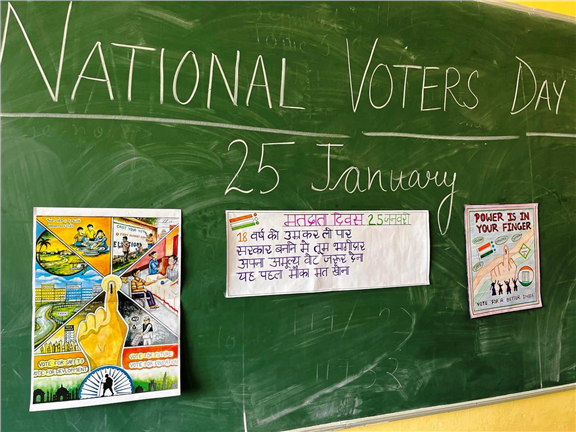 NATIONAL VOTERS DAY
25 January
मतदाता दिवस 25 जनवरी
18 वर्ष की उम्र कर ली पार
सरकार बनाने मे तुम भागीदार
अपना अमूल्य वोट जरूर देना
यह पहला मौका मत खोना
POWER IS IN
YOUR FINGER
VOTE FOR A BETTER INDIA
ELECTIONS
VOTE FOR
VOTE FOR DEVELOPMENT
VOTE FOR FUTURE